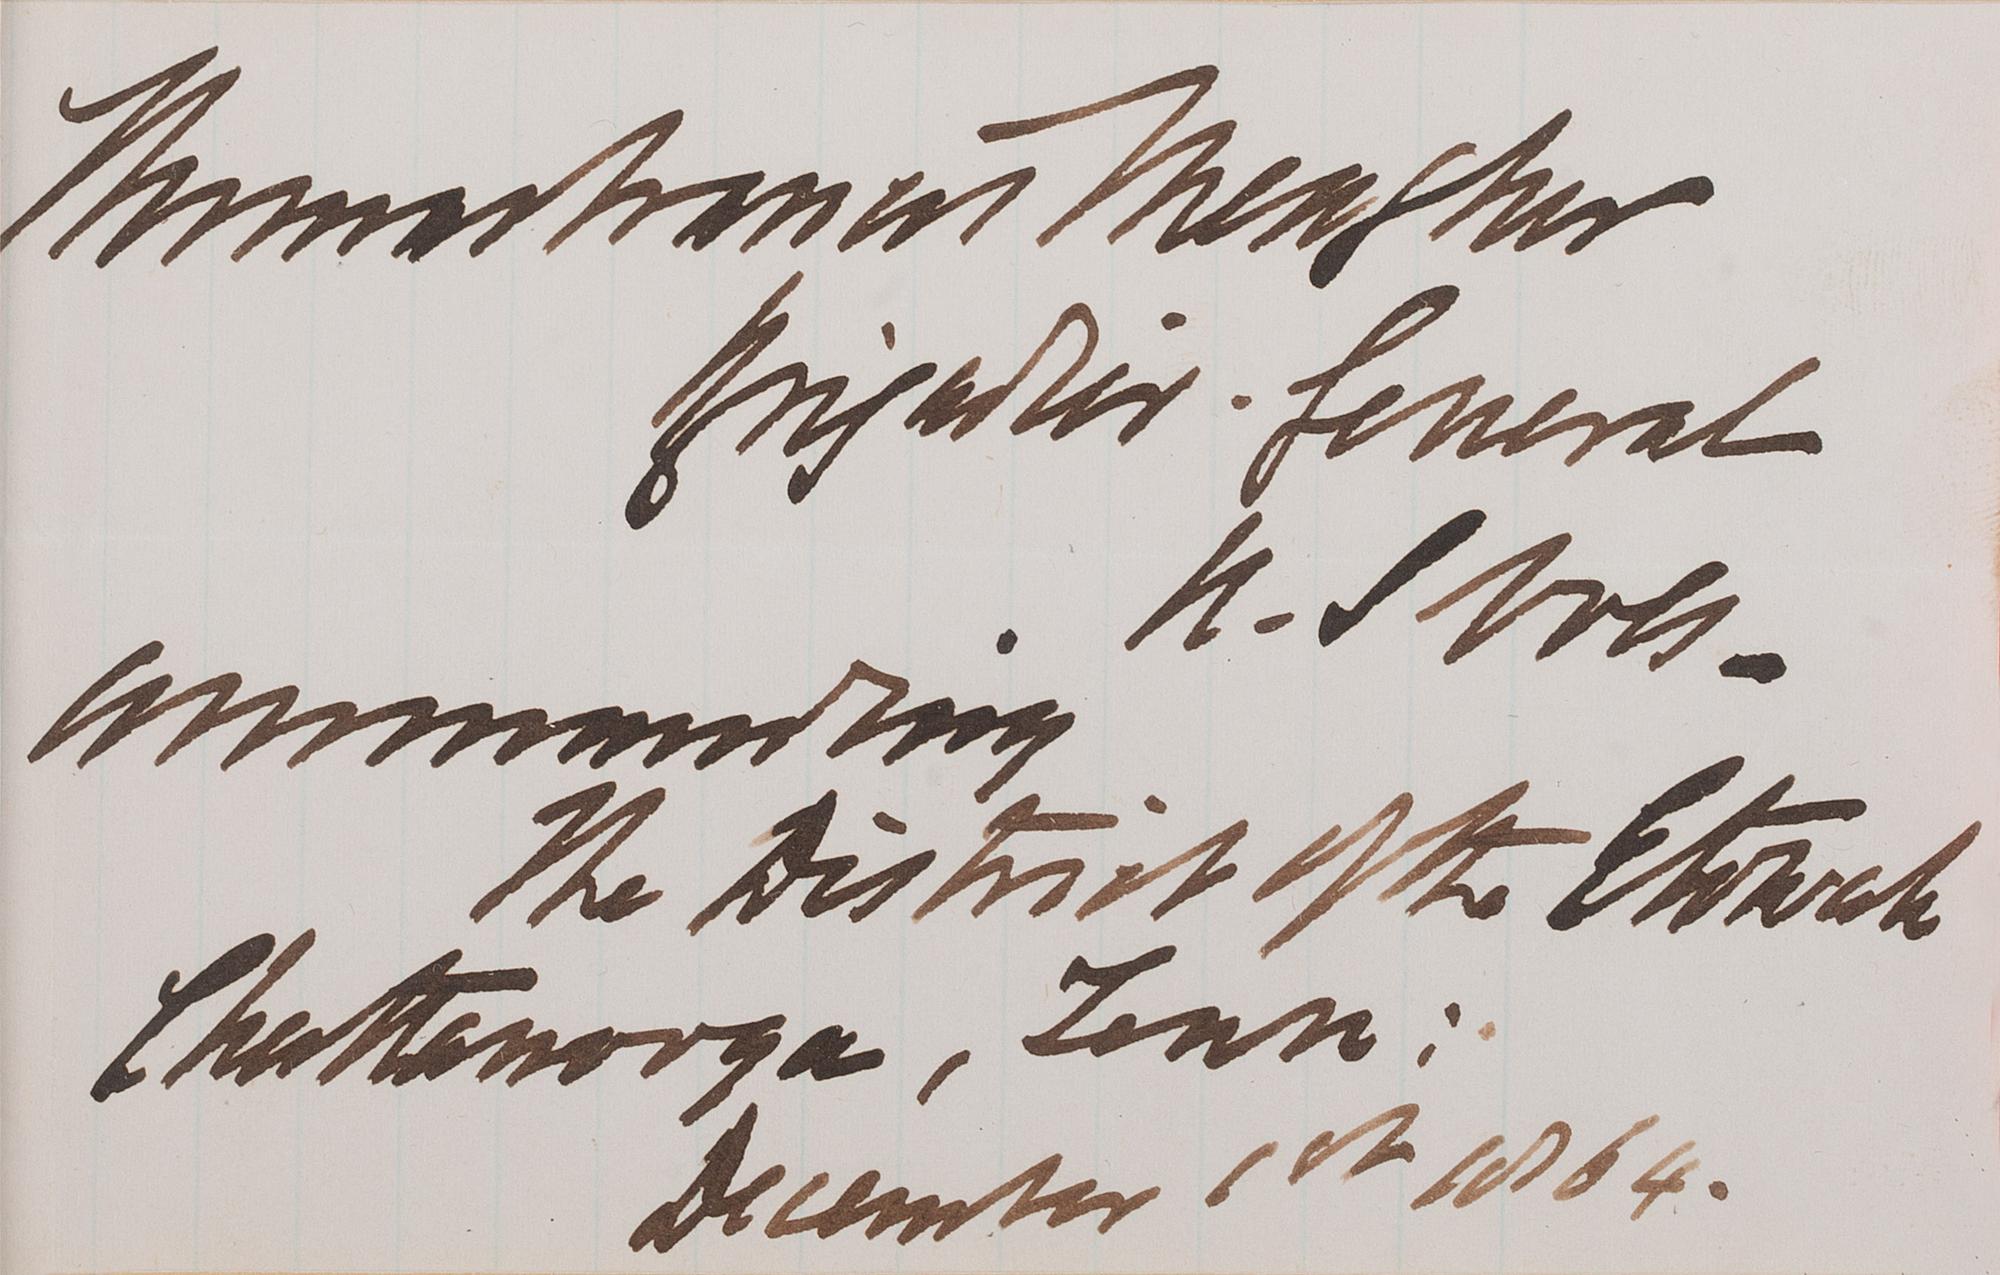 Thomas Francis Meagher
Brigadier-General
U. S Vols.
Commanding
The District of the Etowah
Chattanooga, Tenn:
December 1st 1864.